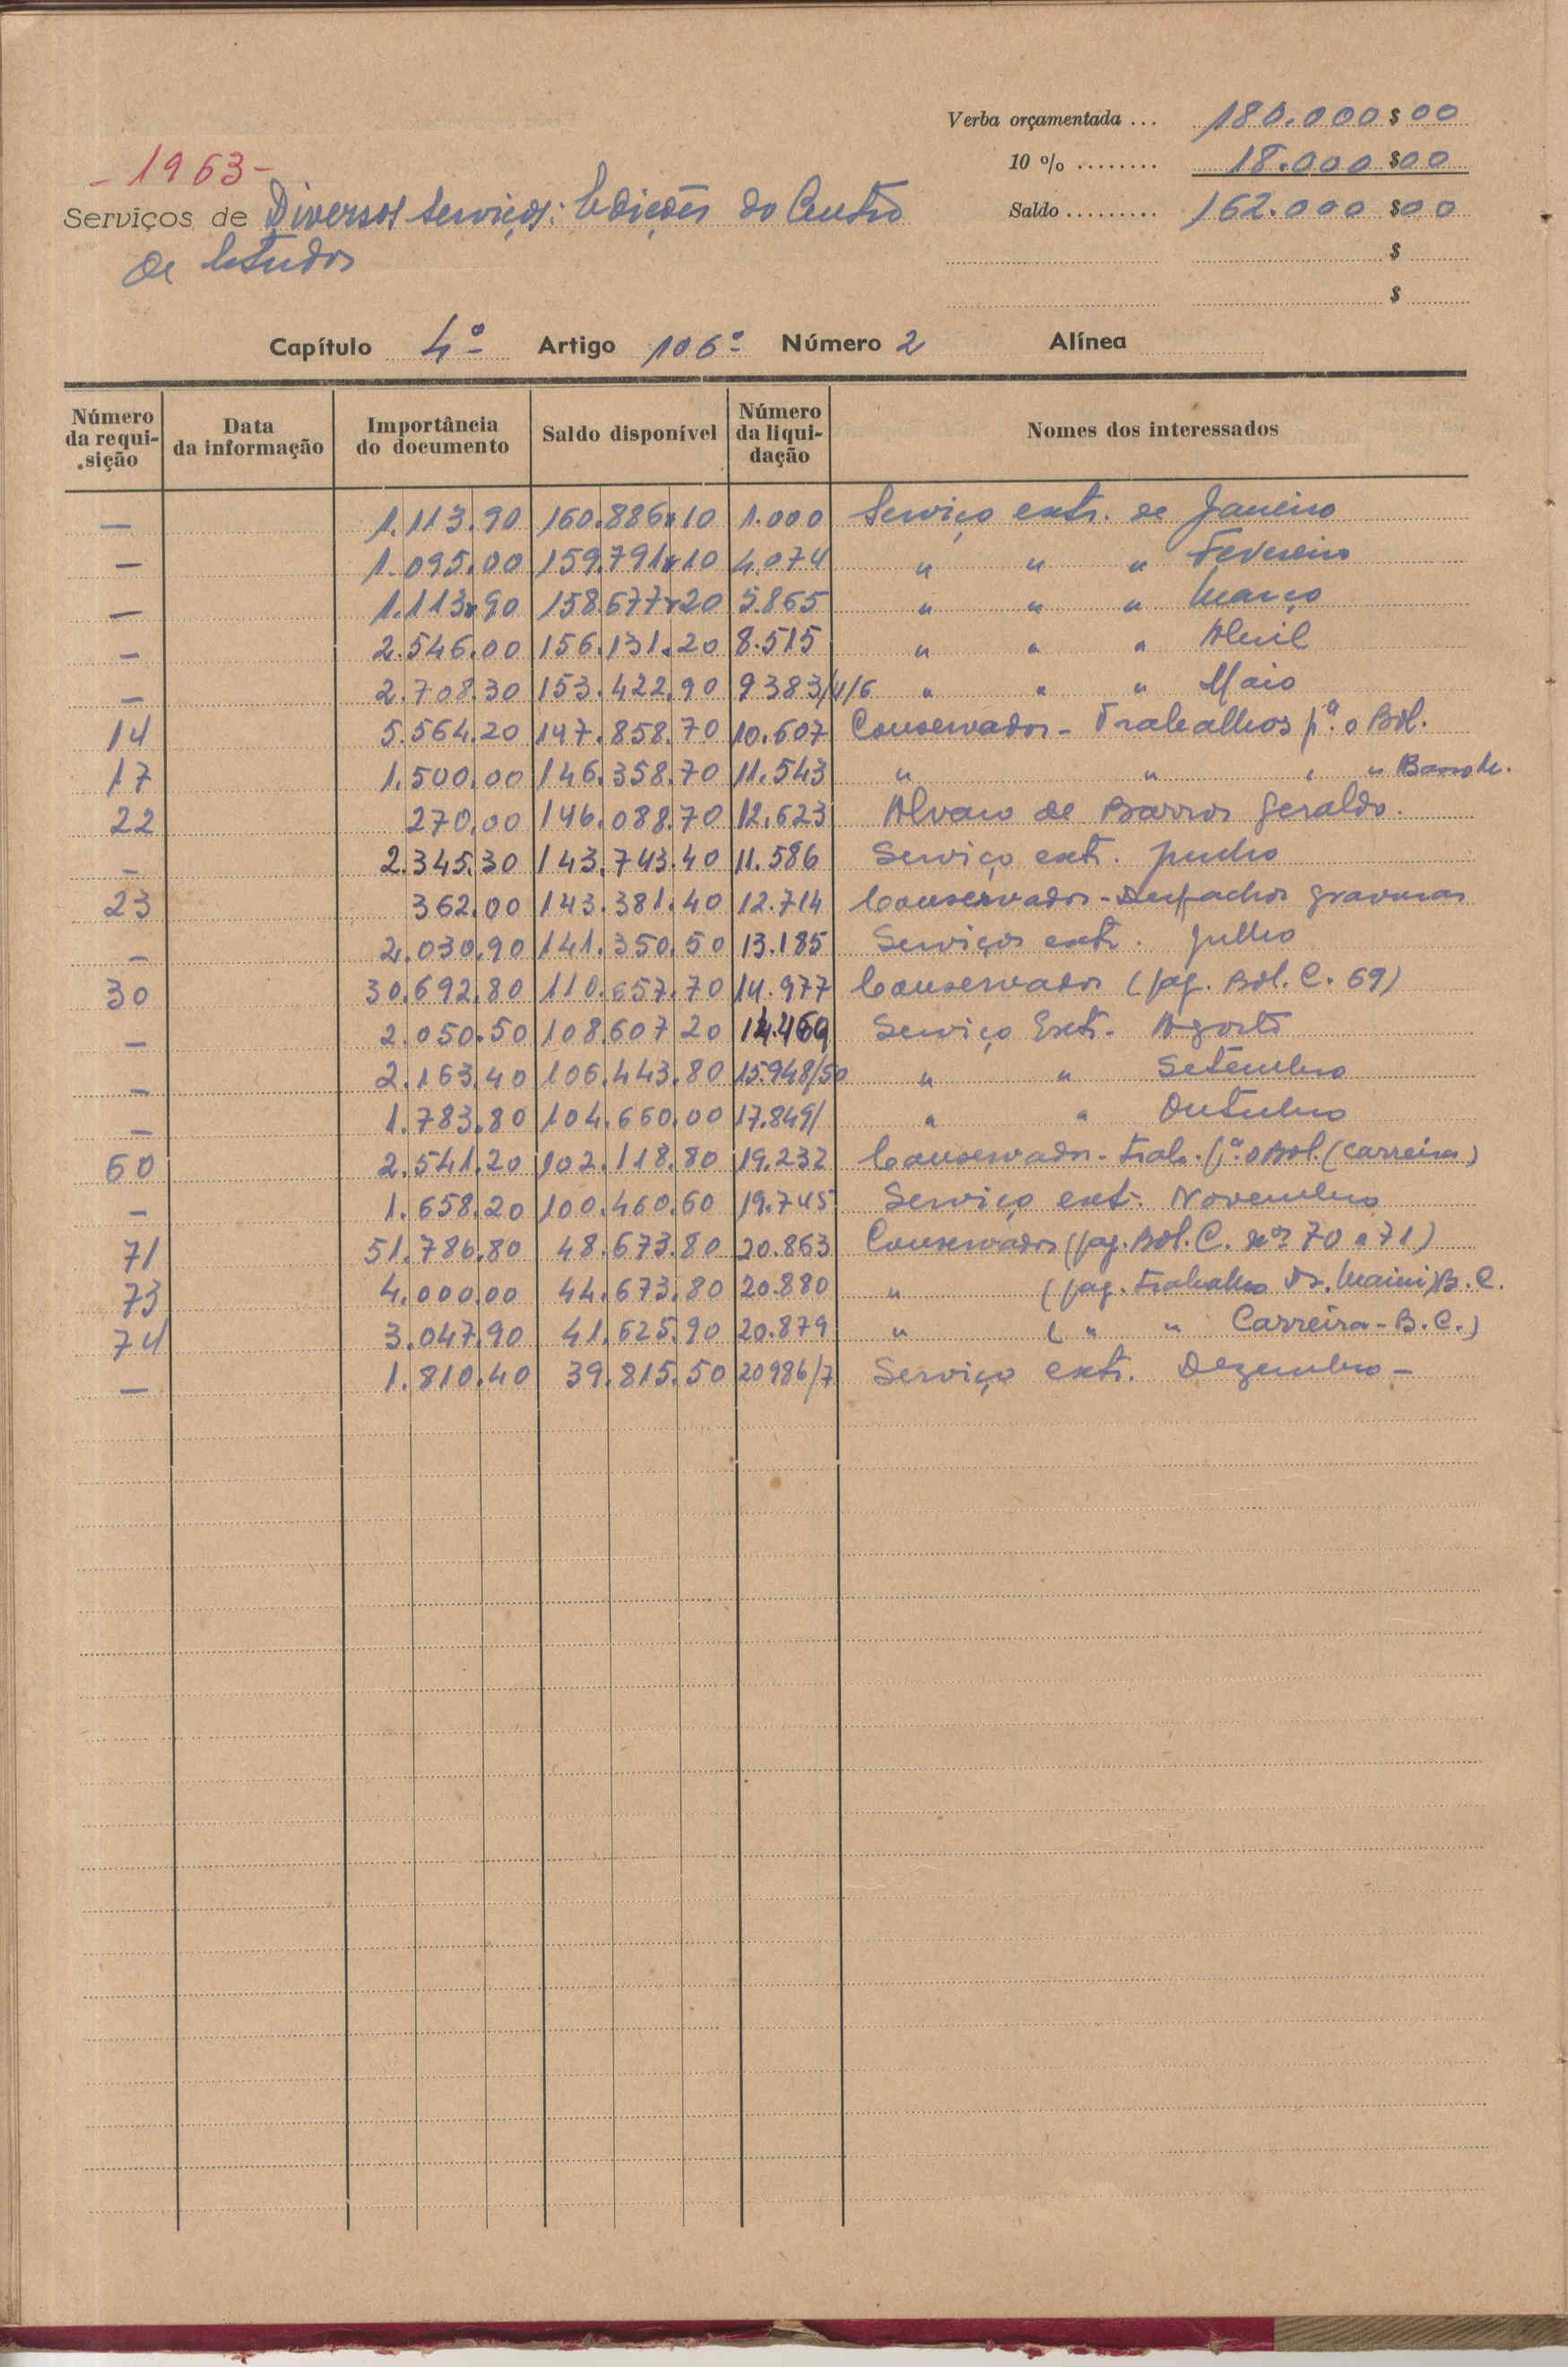 Verba orçamentada ... 180.000$00
10 % ........ 18.000$00
Saldo ......... 162.000$00
$
$
- 1963 -
Serviços de Diversos Serviços: Edições do Centro
de Estudos
Capítulo 4º Artigo 106º Número 2 Alínea
Número da requisição Data da informação Importância do documento Saldo disponível Número da liquidação Nomes dos interessados
— 1.113.90 160.886.10 1.000 Serviço extr. de Janeiro
— 1.095.00 159.791.10 4.074 " " " Fevereiro
— 1.113.90 158.677.20 5.865 " " " Março
— 2.546.00 156.131.20 8.515 " " " Abril
— 2.708.30 153.422.90 9383/4/6 " " " Maio
14 5.564.20 147.858.70 10.607 Conservador - Trabalhos pª. o Bol.
17 1.500.00 146.358.70 11.543 " " " "
22 270.00 146.088.70 12.623 Alvaro de Barros Geraldo.
— 2.345.30 143.743.40 11.586 Serviço extr. Junho
23 362.00 143.381.40 12.714 Conservador - Despachos gravuras
— 2.030.90 141.350.50 13.185 Serviços extr. Julho
30 30.692.80 110.657.70 14.977 Conservador (pag. Bol. C. 69)
— 2.050.50 108.607 20 14.469 Serviço Extr. Agosto
— 2.163.40 106.443.80 15.948/50 " " Setembro
— 1.783.80 104.660.00 17.849/ " " Outubro
60 2.541.20 102.118.80 19.232 Conservador - trab. pª. o Bol. (Carreira)
— 1.658.20 100.460.60 19.745 Serviço extr. Novembro
71 51.786.80 48.673.80 20.863 Conservador (pag. Bol. C. nos 70 e 71)
73 4.000.00 44.673.80 20.880 " (pag. trabalho Dr. B. C.
74 3.047.90 41.625.90 20.879 " ( " " Carreira - B. C.)
— 1.810.40 39.815.50 20986/7 Serviço extr. Dezembro -